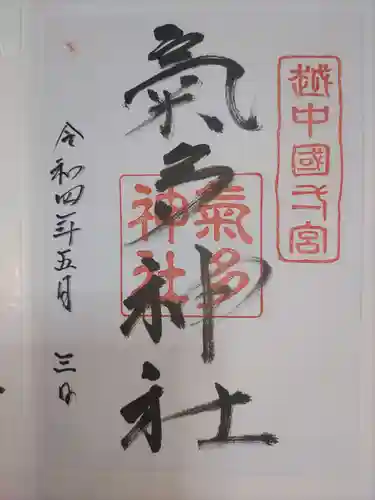 越中國一宮
氣多神社
氣多
神社
令和四年五月三日